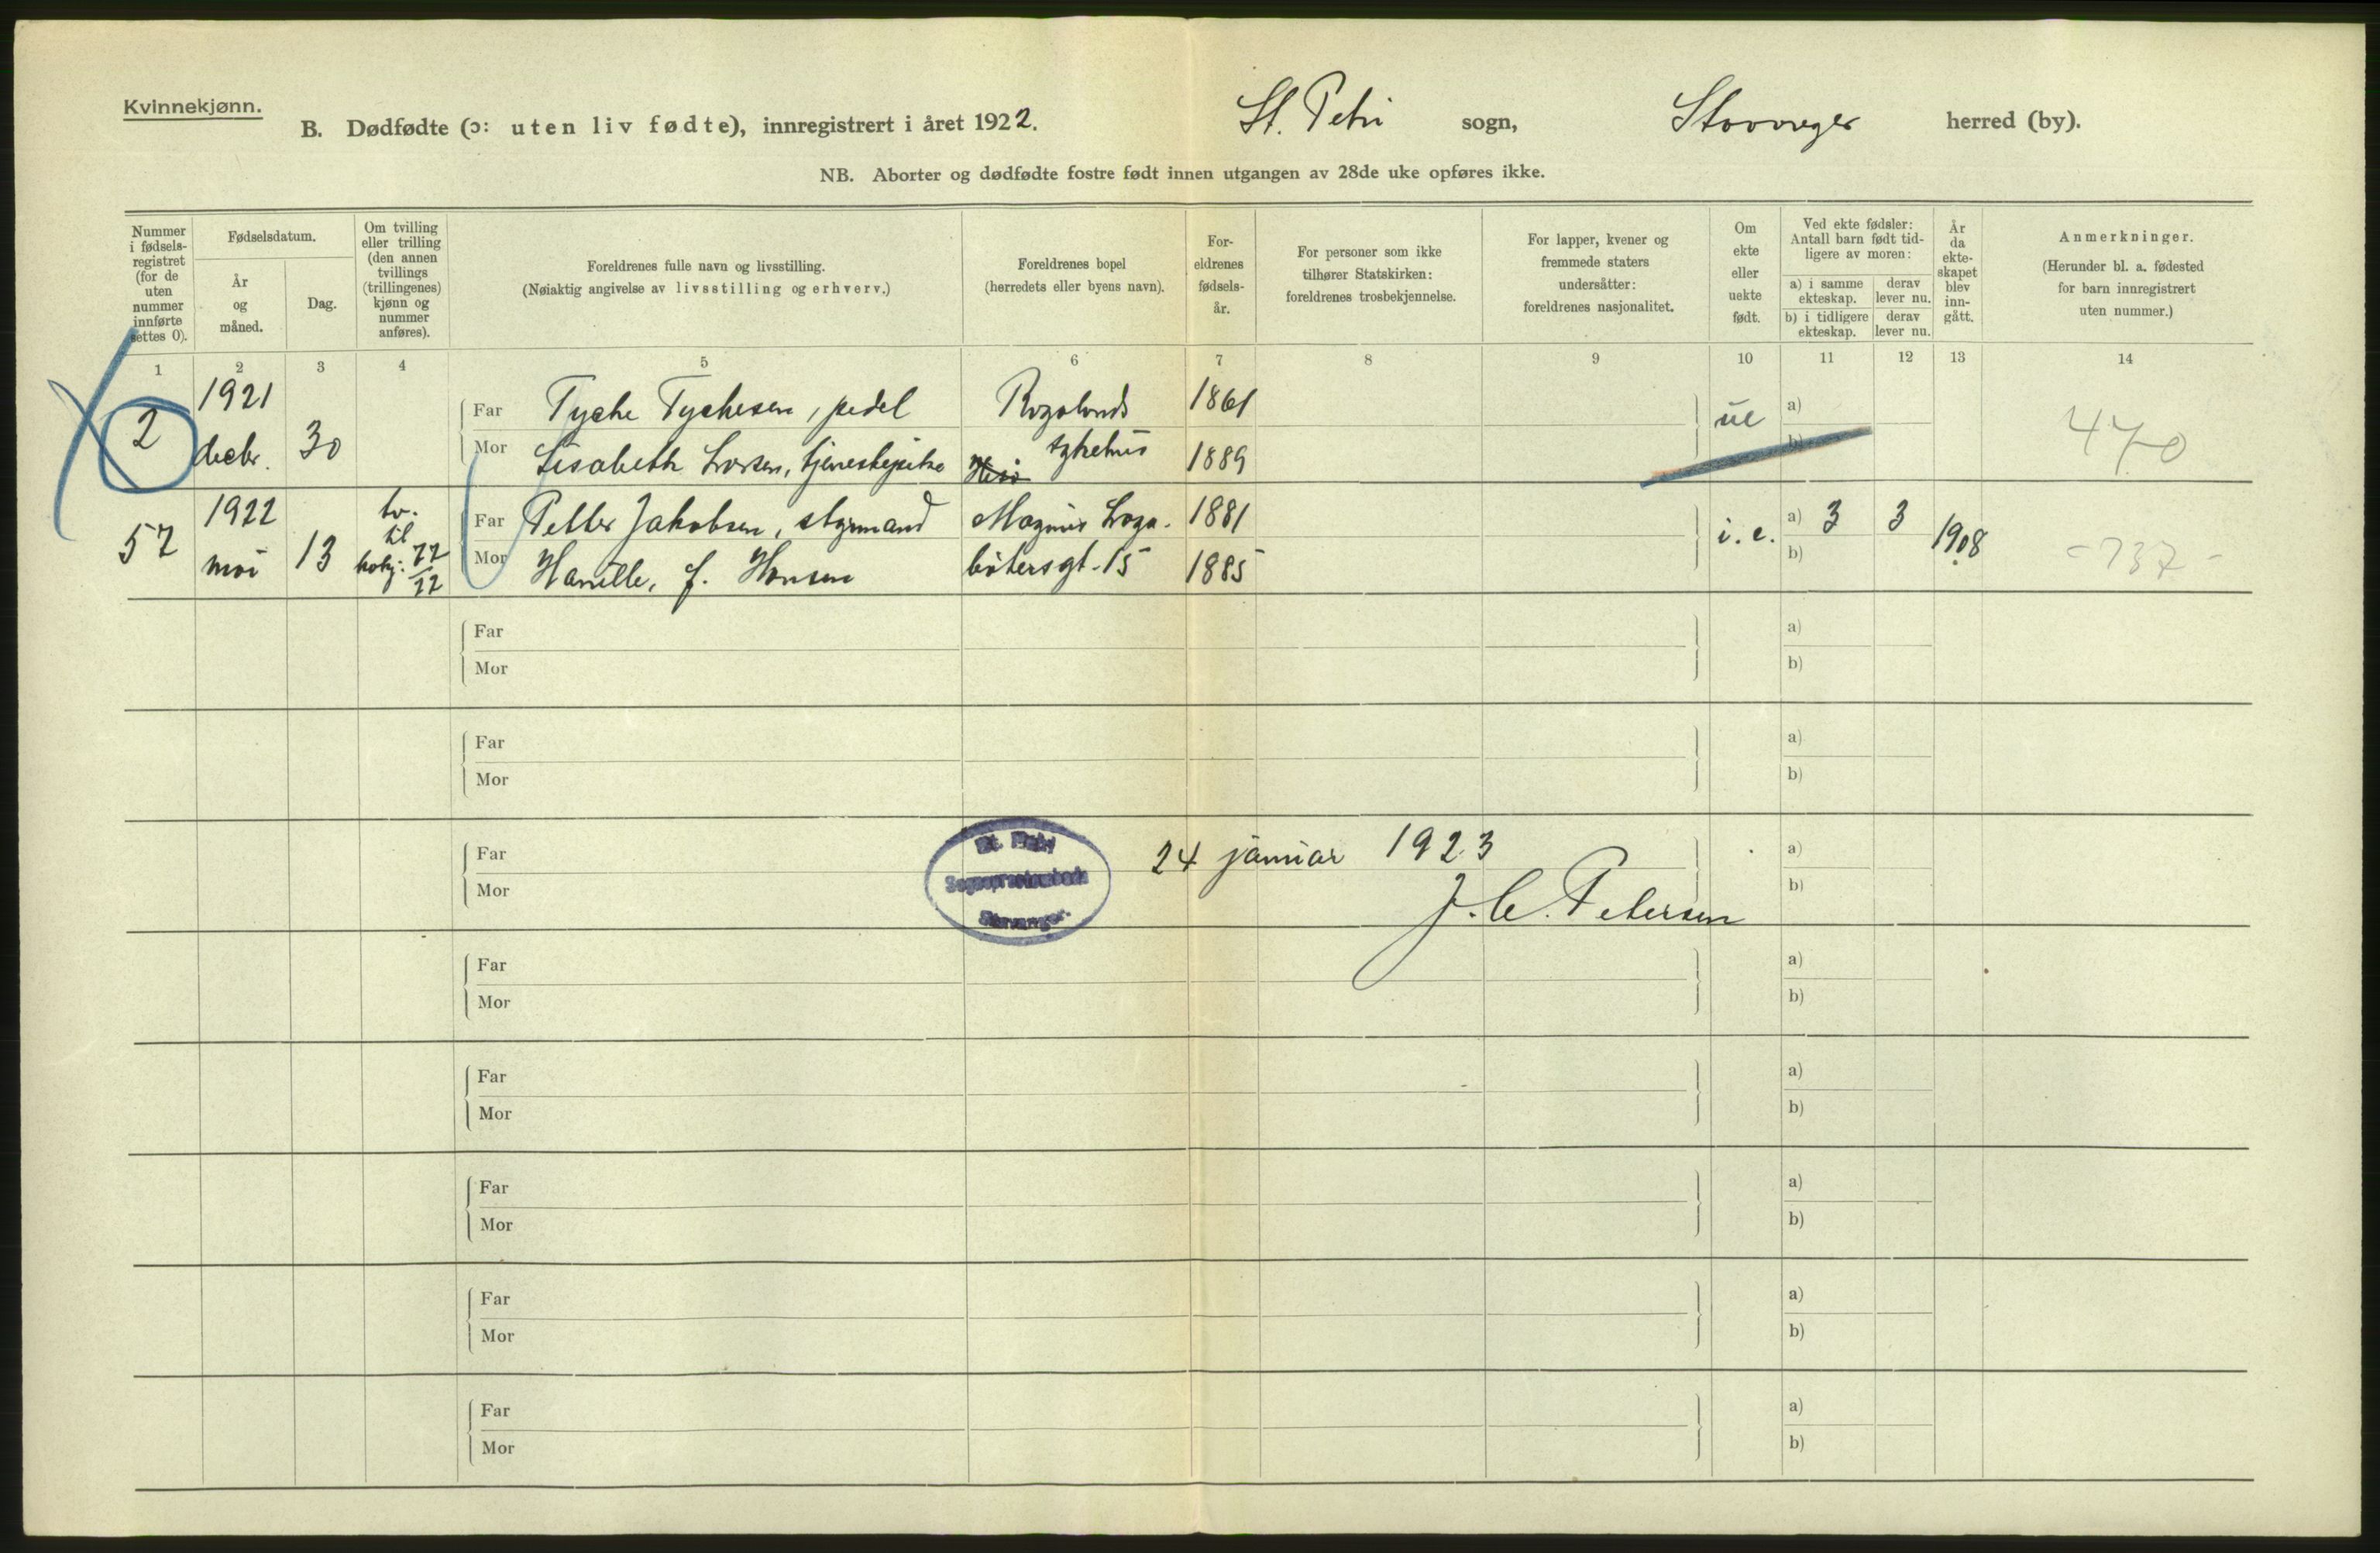 Kvinnekjønn.
B. Dødfødte (ɔ: uten liv fødte), innregistrert i året 1922. St. Petri sogn, Stavanger herred (by).
NB. Aborter og dødfødte fostre født innen utgangen av 28de uke opføres ikke.
Nummer
i fødsels-
registret
(for de
uten
nummer
innførte
settes 0).
Fødselsdatum.
År
og
måned.
Dag.
Om tvilling
eller trilling
(den annen
tvillings
(trillingenes)
kjønn og
nummer
anføres).
Foreldrenes fulle navn og livsstilling.
(Nøiaktig angivelse av livsstilling og erhverv.)
Foreldrenes bopel
(herredets eller byens navn).
For-
eldrenes
fødsels-
år.
For personer som ikke
tilhører Statskirken:
foreldrenes trosbekjennelse.
For lapper, kvener og
fremmede staters
undersåtter:
foreldrenes nasjonalitet.
Om
ekte
eller
uekte
født.
Ved ekte fødsler:
Antall barn født tid-
ligere av moren:
a) i samme
ekteskap.
derav
lever nu.
b) i tidligere
ekteskap.
derav
lever nu.
År
da
ekte-
skapet
blev
inn-
gått.
Anmerkninger.
(Herunder bl. a. fødested
for barn innregistrert
uten nummer.)
1 2 3 4 5 6 7 8 9 10 11 12 13 14
2 1921 decbr. 30
Far Tyche Tychesen, pedel Rogalands 1861 ue a)
Mor Lisabeth Larsen, sykehus 1889 b) 470
57 1922 mai 13 tv. til
Far Petter Jakobsen, styrmand Magnus Laga- 1881 i. e. a) 3 3 1908
Mor Hamille, f. Hansen bøtersgt. 15 1885 b) -737-
Far a)
Mor b)
Far a)
Mor b)
St. Petri
Sogneprestembede
Stavanger.
24 januar 1923
J. C. Petersen
Far a)
Mor b)
Far a)
Mor b)
Far a)
Mor b)
Far a)
Mor b)
Far a)
Mor b)
Far a)
Mor b)